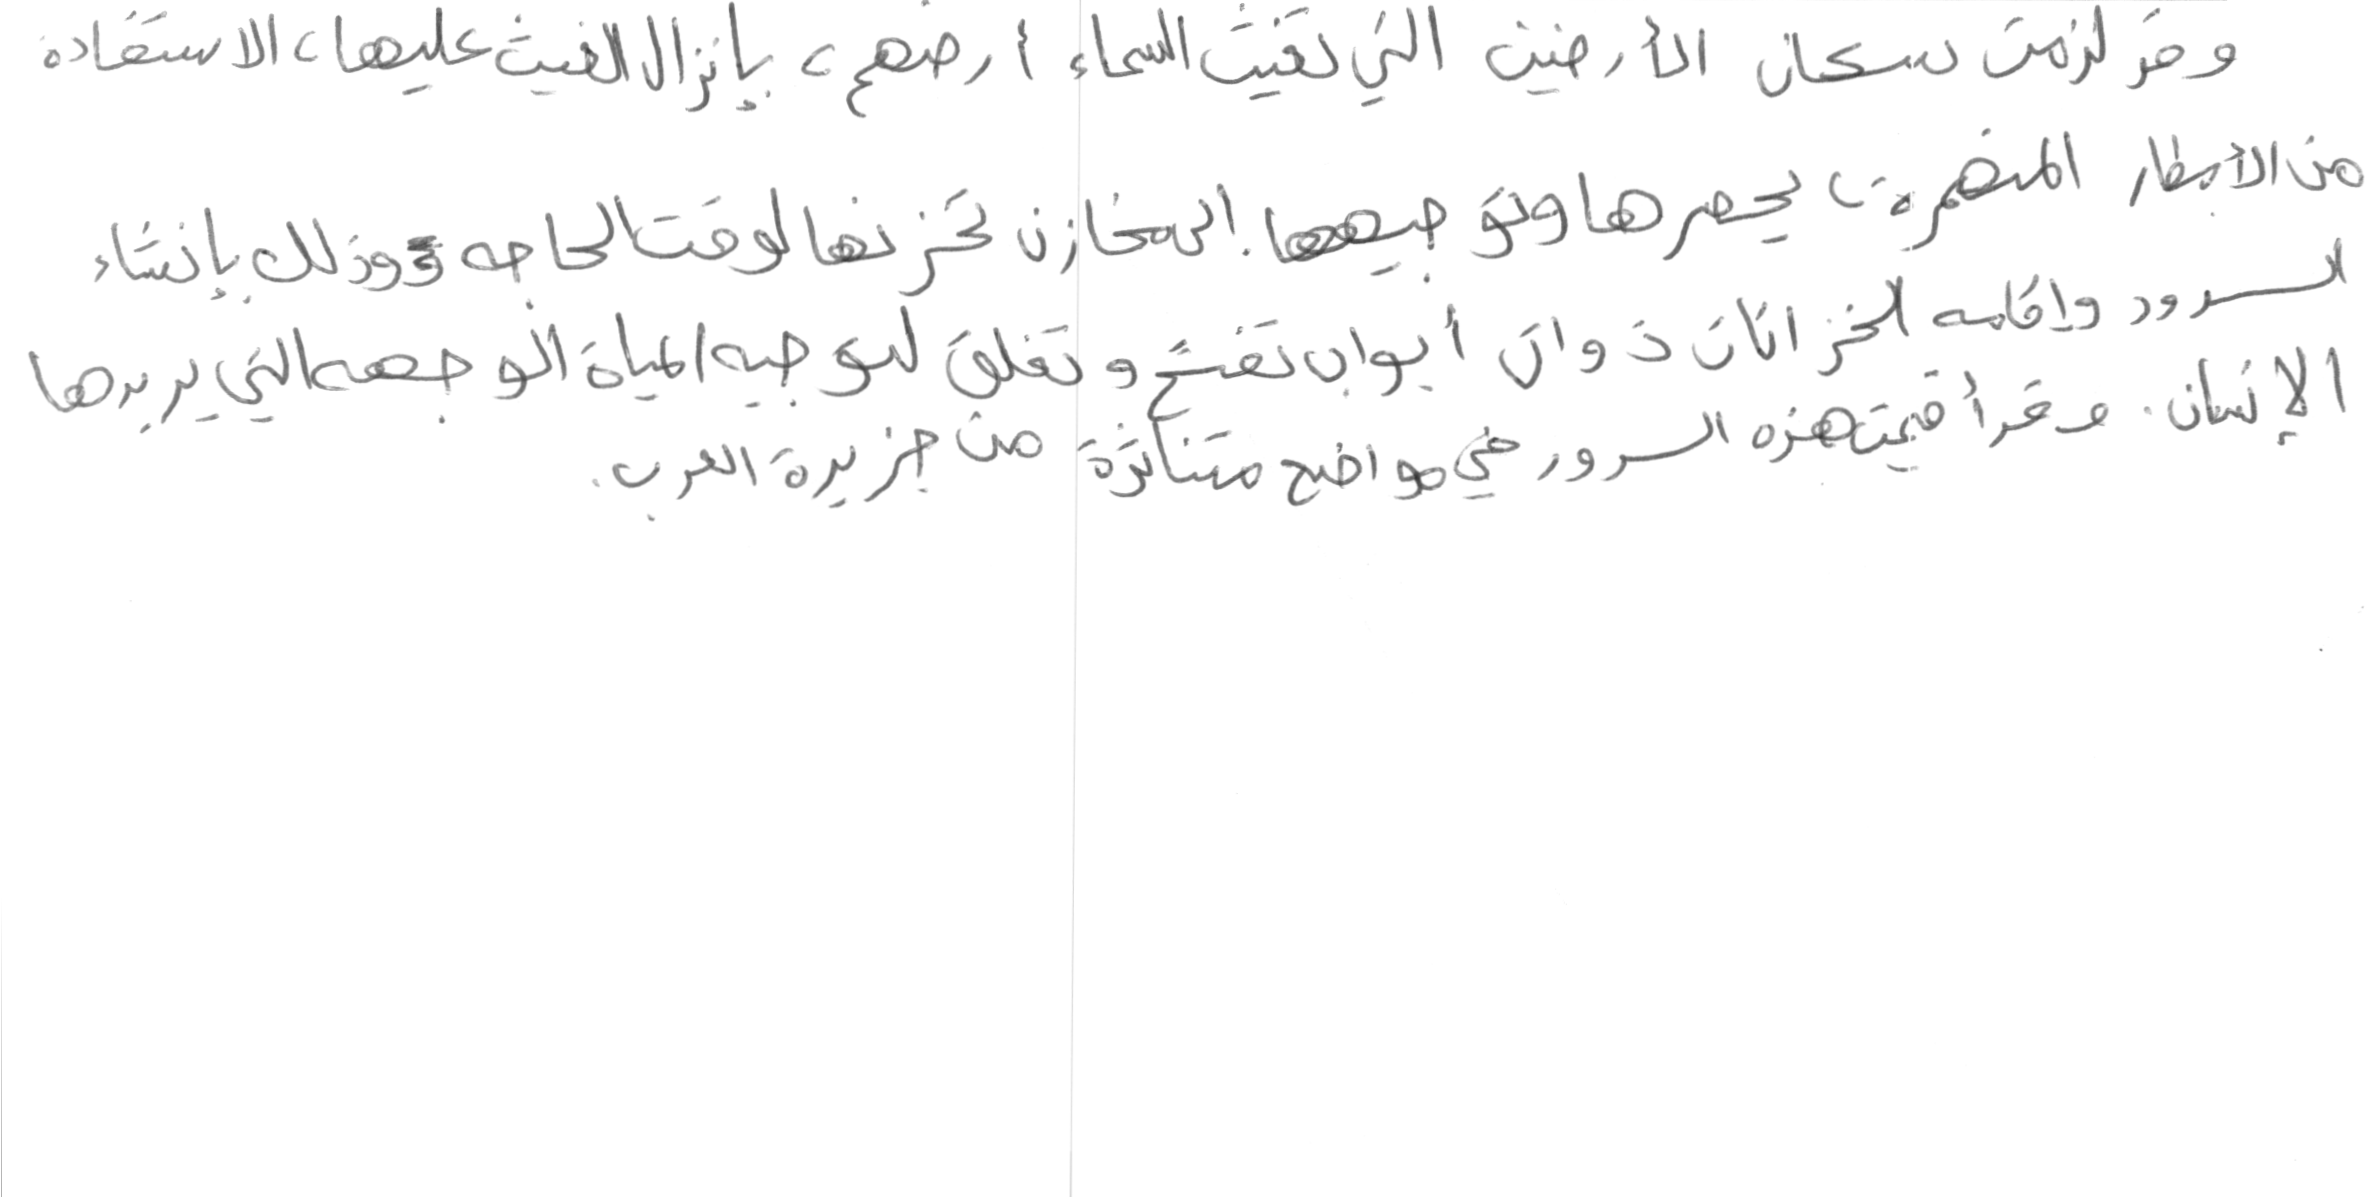 وقد لزمت سكان الأرضين التي تغيث السماء أرضهم، بإنزال الغيث عليها، الاستفادة
من الأمطار المنهمرة، بحصرها وتوجيهها إلى مخازن تخزنها لوقت الحاجه وذلك بإنشاء
السدود واقامه الخزانات ذوات أبواب تفتح وتغلق لتوجيه المياة الوجهه التي يريدها
الإنسان. وقد أقيمت هذه السدود في مواضع متناثرة من جزيرة العرب.